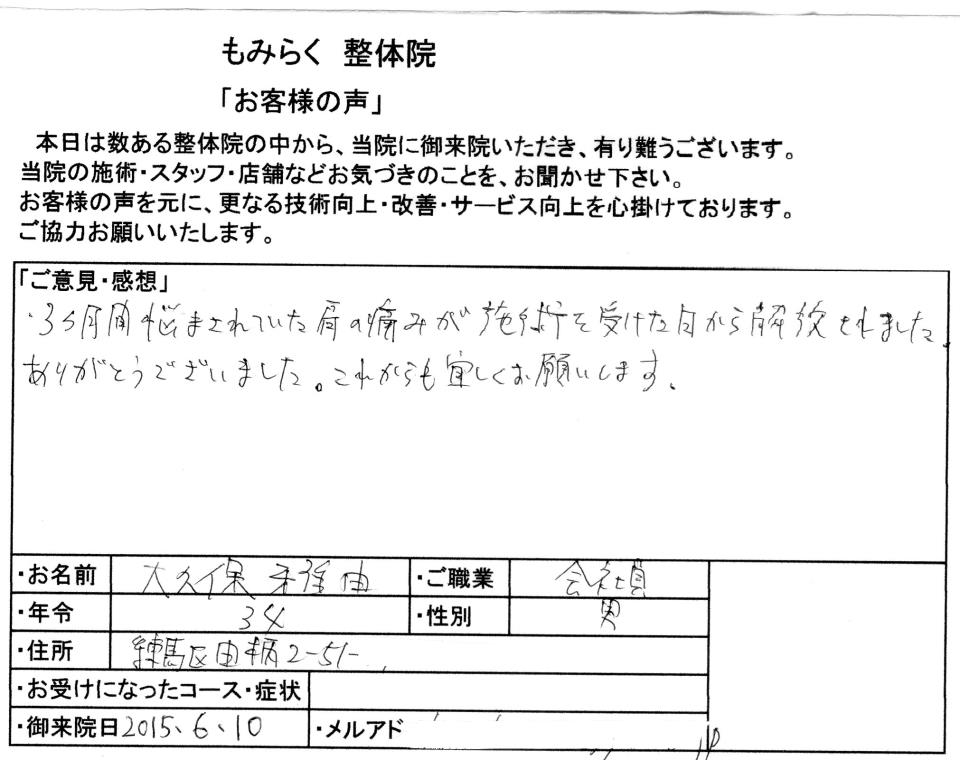 もみらく 整体院
「お客様の声」
本日は数ある整体院の中から、当院に御来院いただき、有り難うございます。
当院の施術・スタッフ・店舗などお気づきのことを、お聞かせ下さい。
お客様の声を元に、更なる技術向上・改善・サービス向上を心掛けております。
ご協力お願いいたします。
「ご意見・感想」
・3ヶ月間悩まされていた肩の痛みが施術を受けた日から解放されました。
ありがとうございました。これからも宜しくお願いします。
・お名前 大久保 雅由 ・ご職業 会社員
・年令 34 ・性別 男
・住所 練馬区田柄2-51-
・お受けになったコース・症状
・御来院日 2015、6、10 ・メルアド